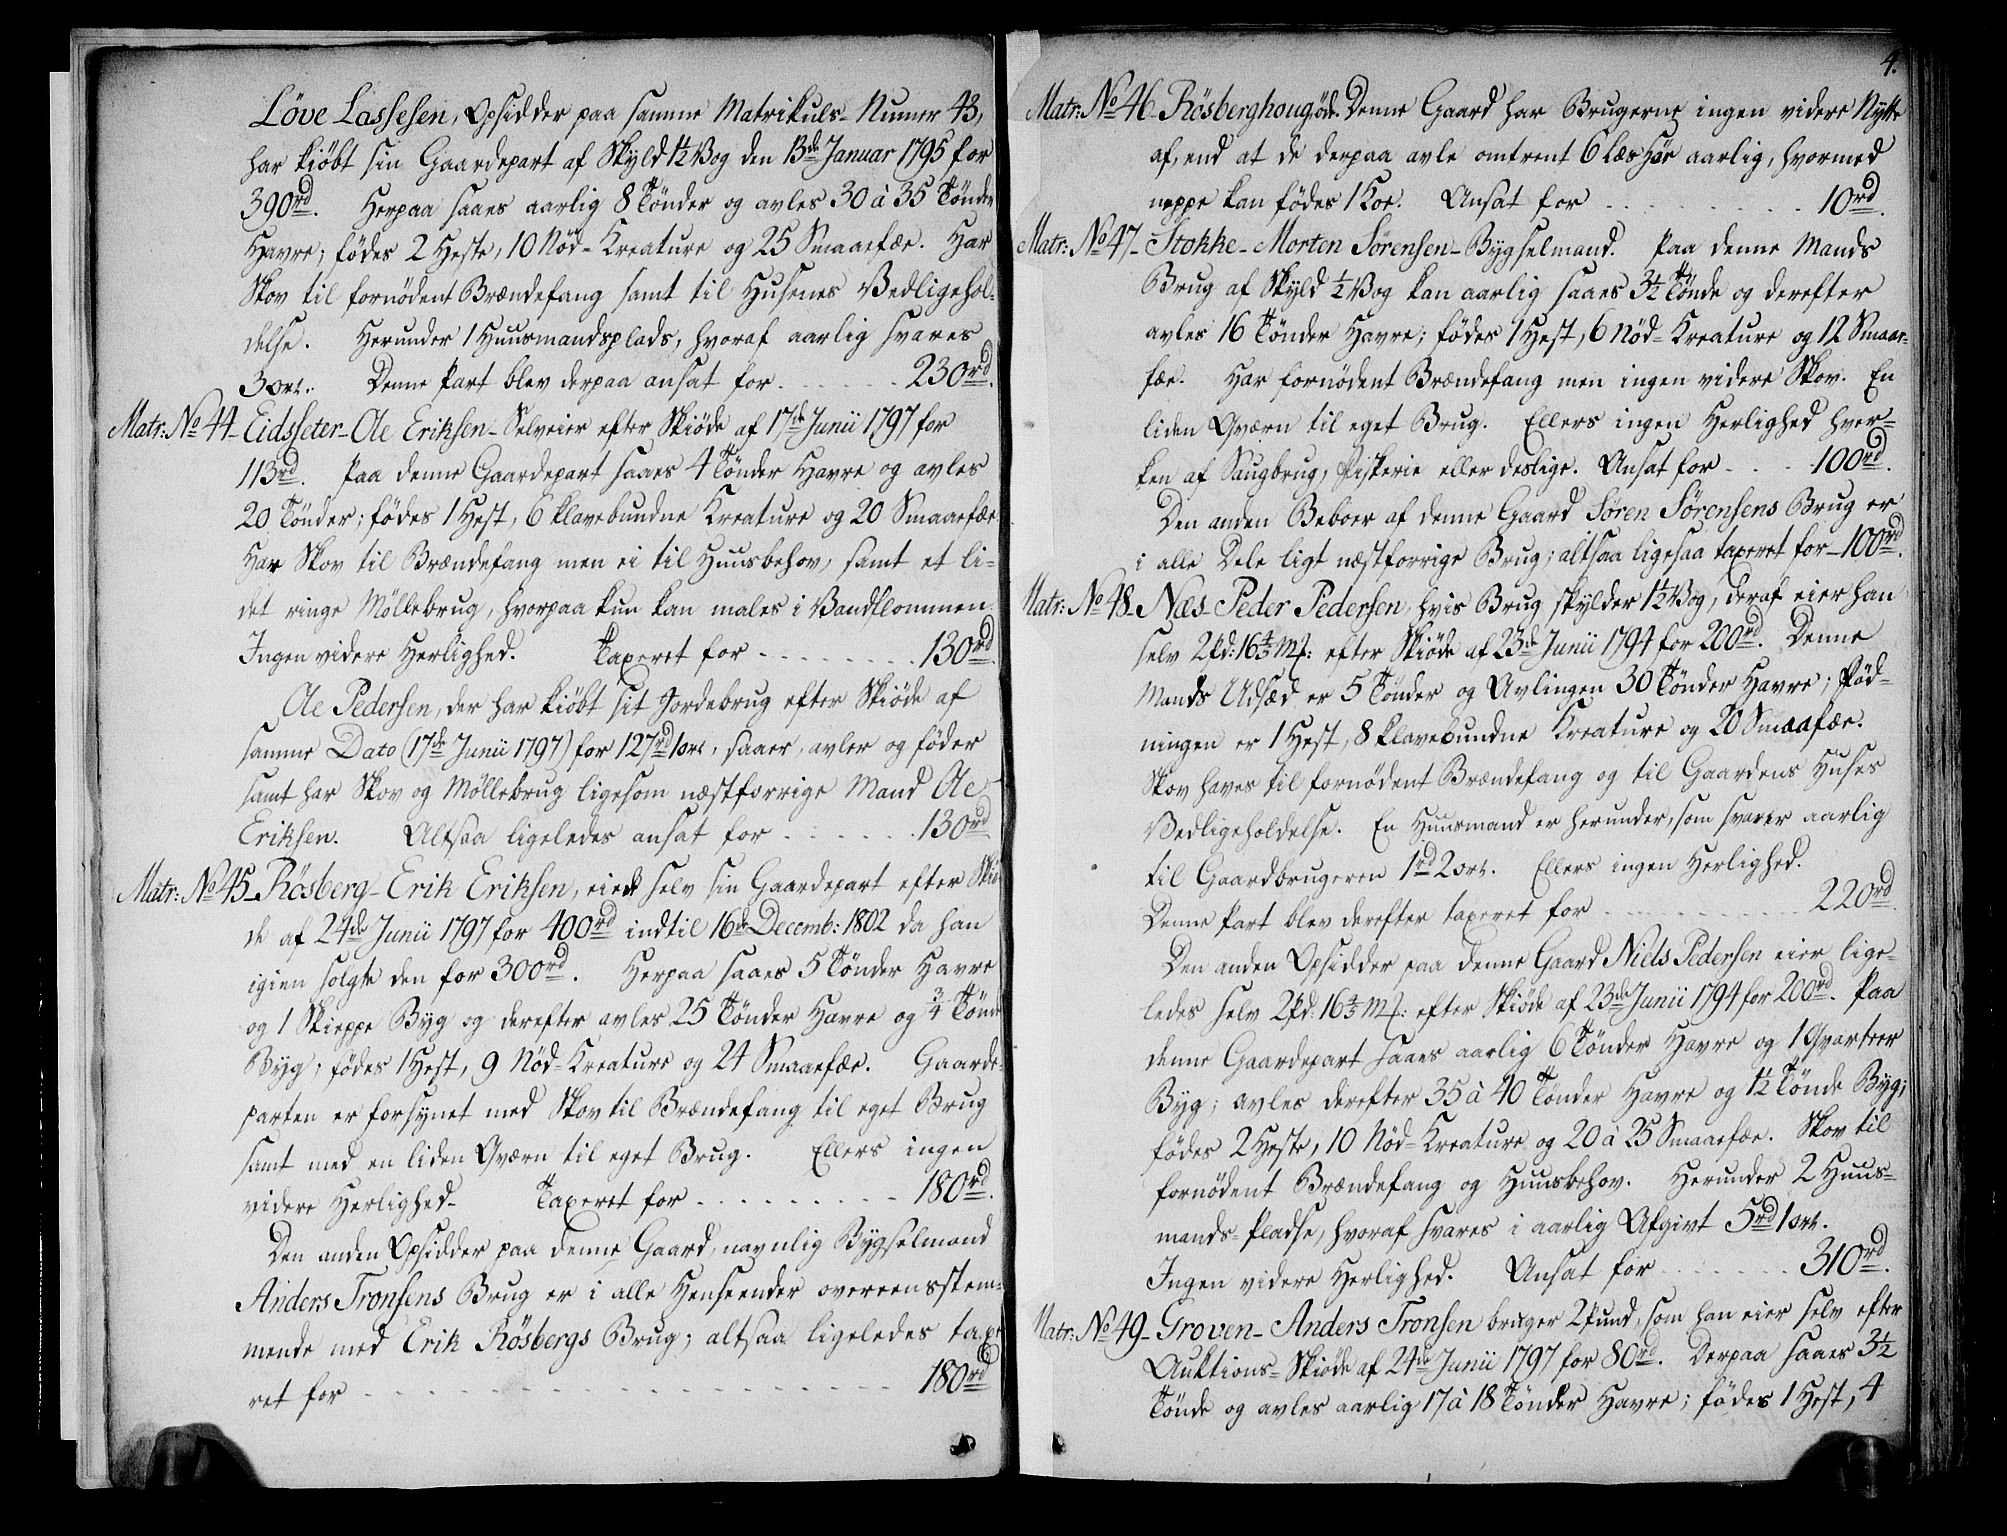 Löve Lassesen, Opsidder paa samme Matrikuls-Numer 43,
har kiöbt sin Gaardepart af Skyld 1½ Vog den 13de Januar 1795 for
390rd. Herpaa saaes aarlig 8 Tönder og avles 30 à 35 Tönder
Havre; födes 2 Heste, 10 Nöd-Kreature og 25 Smaaefæe. Har
Skov til fornödent Brændefang samt til Husenes Vedligehol-
delse. Herunder 1 Huusmandsplads, hvoraf aarlig svares
3 ort. Denne Part blev derpaa ansat for - - - 230rd.
Matr: No 44- Eidsseter- Ole Eriksen- Selveier efter Skiöde af 17de Junii 1797 for
113rd. Paa denne Gaardepart saaes 4 Tönder Havre og avles
20 Tönder; födes 1 Hest, 6 klavebundne Kreature og 20 Smaaefæe
Har Skov til Brændefang men ei til Huusbehov, samt et li-
det ringe Möllebrug, hvorpaa kun kan males i Vandflommen.
Ingen videre Herlighed. Taxeret for - - - 130rd.
Ole Pedersen, der har kiöbt sit Jordebrug efter Skiöde af
samme Dato (17de Junii 1797) for 127rd 1 ort, saaer, avler og föder
samt har Skov og Möllebrug ligesom næstforrige Mand Ole
Eriksen. Altsaa ligeledes ansat for - - - 130rd
Matr: No 45- Rösberg- Erik Eriksen, eiede selv sin Gaardepart efter Skiö-
de af 24de Junii 1797 for 400rd indtil 16de Decemb: 1802 da han
igien solgte den for 300rd. Herpaa saaes 5 Tönder Havre
og 1 Skieppe Byg og derefter avles 25 Tönder Havre og ¾ Tönde
Byg; födes 1 Hest, 9 Nöd-Kreature og 24 Smaaefæe. Gaarde-
parten er forsynet med Skov til Brændefang til eget Brug
samt med en liden Qværn til eget Brug. Ellers ingen
videre Herlighed- Taxeret for - - - 180rd.
Den anden Opsidder paa denne Gaard, navnlig Bygselmand
Anders Tronsens Brug er i alle Henseender overeensstem-
mende med Erik Rösbergs Brug; altsaa ligeledes taxe
ret for - - - 180rd
4.
Matr: No 46- Rösberghoug, öde. Denne Gaard har Brugerne ingen videre Nytte
af, end at de derpaa avle omtrent 6 læs Höe aarlig, hvormed
neppe kan födes 1 Koe. Ansat for - - - 10rd.
Matr: No 47- Stokke- Morten Sörensen- Bygselmand. Paa denne Mands
Brug af Skyld ½ Vog kan aarlig saaes 3½ Tönde og derefter
avles 16 Tönder Havre; födes 1 Hest, 6 Nöd-Kreature og 12 Smaae-
fæe. Har fornödent Brændefang men ingen videre Skov. En
liden Qværn til eget Brug. Ellers ingen Herlighed hver-
ken af Saugbrug, Fiskerie eller deslige. Ansat for - - - 100rd.
Den anden Beboer af denne Gaard Sören Sörensens Brug er
i alle Dele ligt næstforrige Brug; altsaa ligesaa taxeret for- 100rd.
Matr: No 48- Næs- Peder Pedersen, hvis Brug skylder 1½ Vog, deraf eier han
selv 2 Pd: 16⅘ Mk: efter Skiöde af 23de Junii 1794 for 200rd. Denne
Mands Udsæd er 5 Tönder og Avlingen 30 Tönder Havre; Föd-
ningen er 1 Hest, 8 klavebundne Kreature og 20 Smaafæe.
Skov haves til fornödent Brændefang og til Gaardens Huses
Vedligeholdelse. En Huusmand er herunder, som svarer aarlig
til Gaardbrugeren 1rd 2 ort. Ellers ingen Herlighed.
Denne Part blev derefter taxeret for - - - 220rd.
Den anden Opsidder paa denne Gaard Niels Pedersen eier lige-
ledes selv 2 Pd: 16⅘ Mk: efter Skiöde af 23de Junii 1794 for 200rd. Paa
denne Gaardepart saaes aarlig 6 Tönder Havre og 1 Qvarteer
Byg; avles derefter 35 à 40 Tönder Havre og 1½ Tönde Byg;
födes 2 Heste, 10 Nöd-Kreature og 20 à 25 Smaaefæe. Skov til
fornödent Brændefang og Huusbehov. Herunder 2 Huus-
mands-Pladse, hvoraf svares i aarlig Afgivt 5rd 1 ort.
Ingen videre Herlighed. Ansat for - - - 310rd.
Matr: No 49- Groven- Anders Tronsen bruger 2 Pund, som han eier selv efter
Auktions-Skiöde af 24de Junii 1797 for 80rd. Derpaa saaes 3½
Tönde og avles aarlig 17 à 18 Tönder Havre; födes 1 Hest, 4